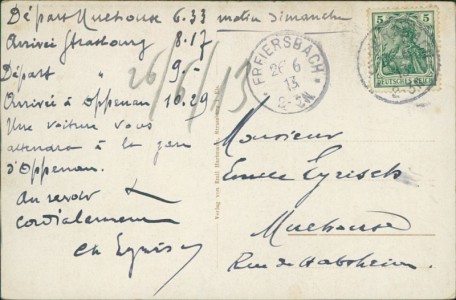 Départ Mulhouse 6.33 matin Dimanche
Arrivée Strasbourg 8.17
Départ " 9.-
Arrivée à Oppenau 10.29
Une voiture vous
attendra à la gare
d'Oppenau.
Au revoir
cordialement
26/6/13
FREIERSBACH
26 6
13
2-3N.
5 5
DEUTSCHES REICH
Monsieur
Emile
Mulhouse
Rue de Habsheim